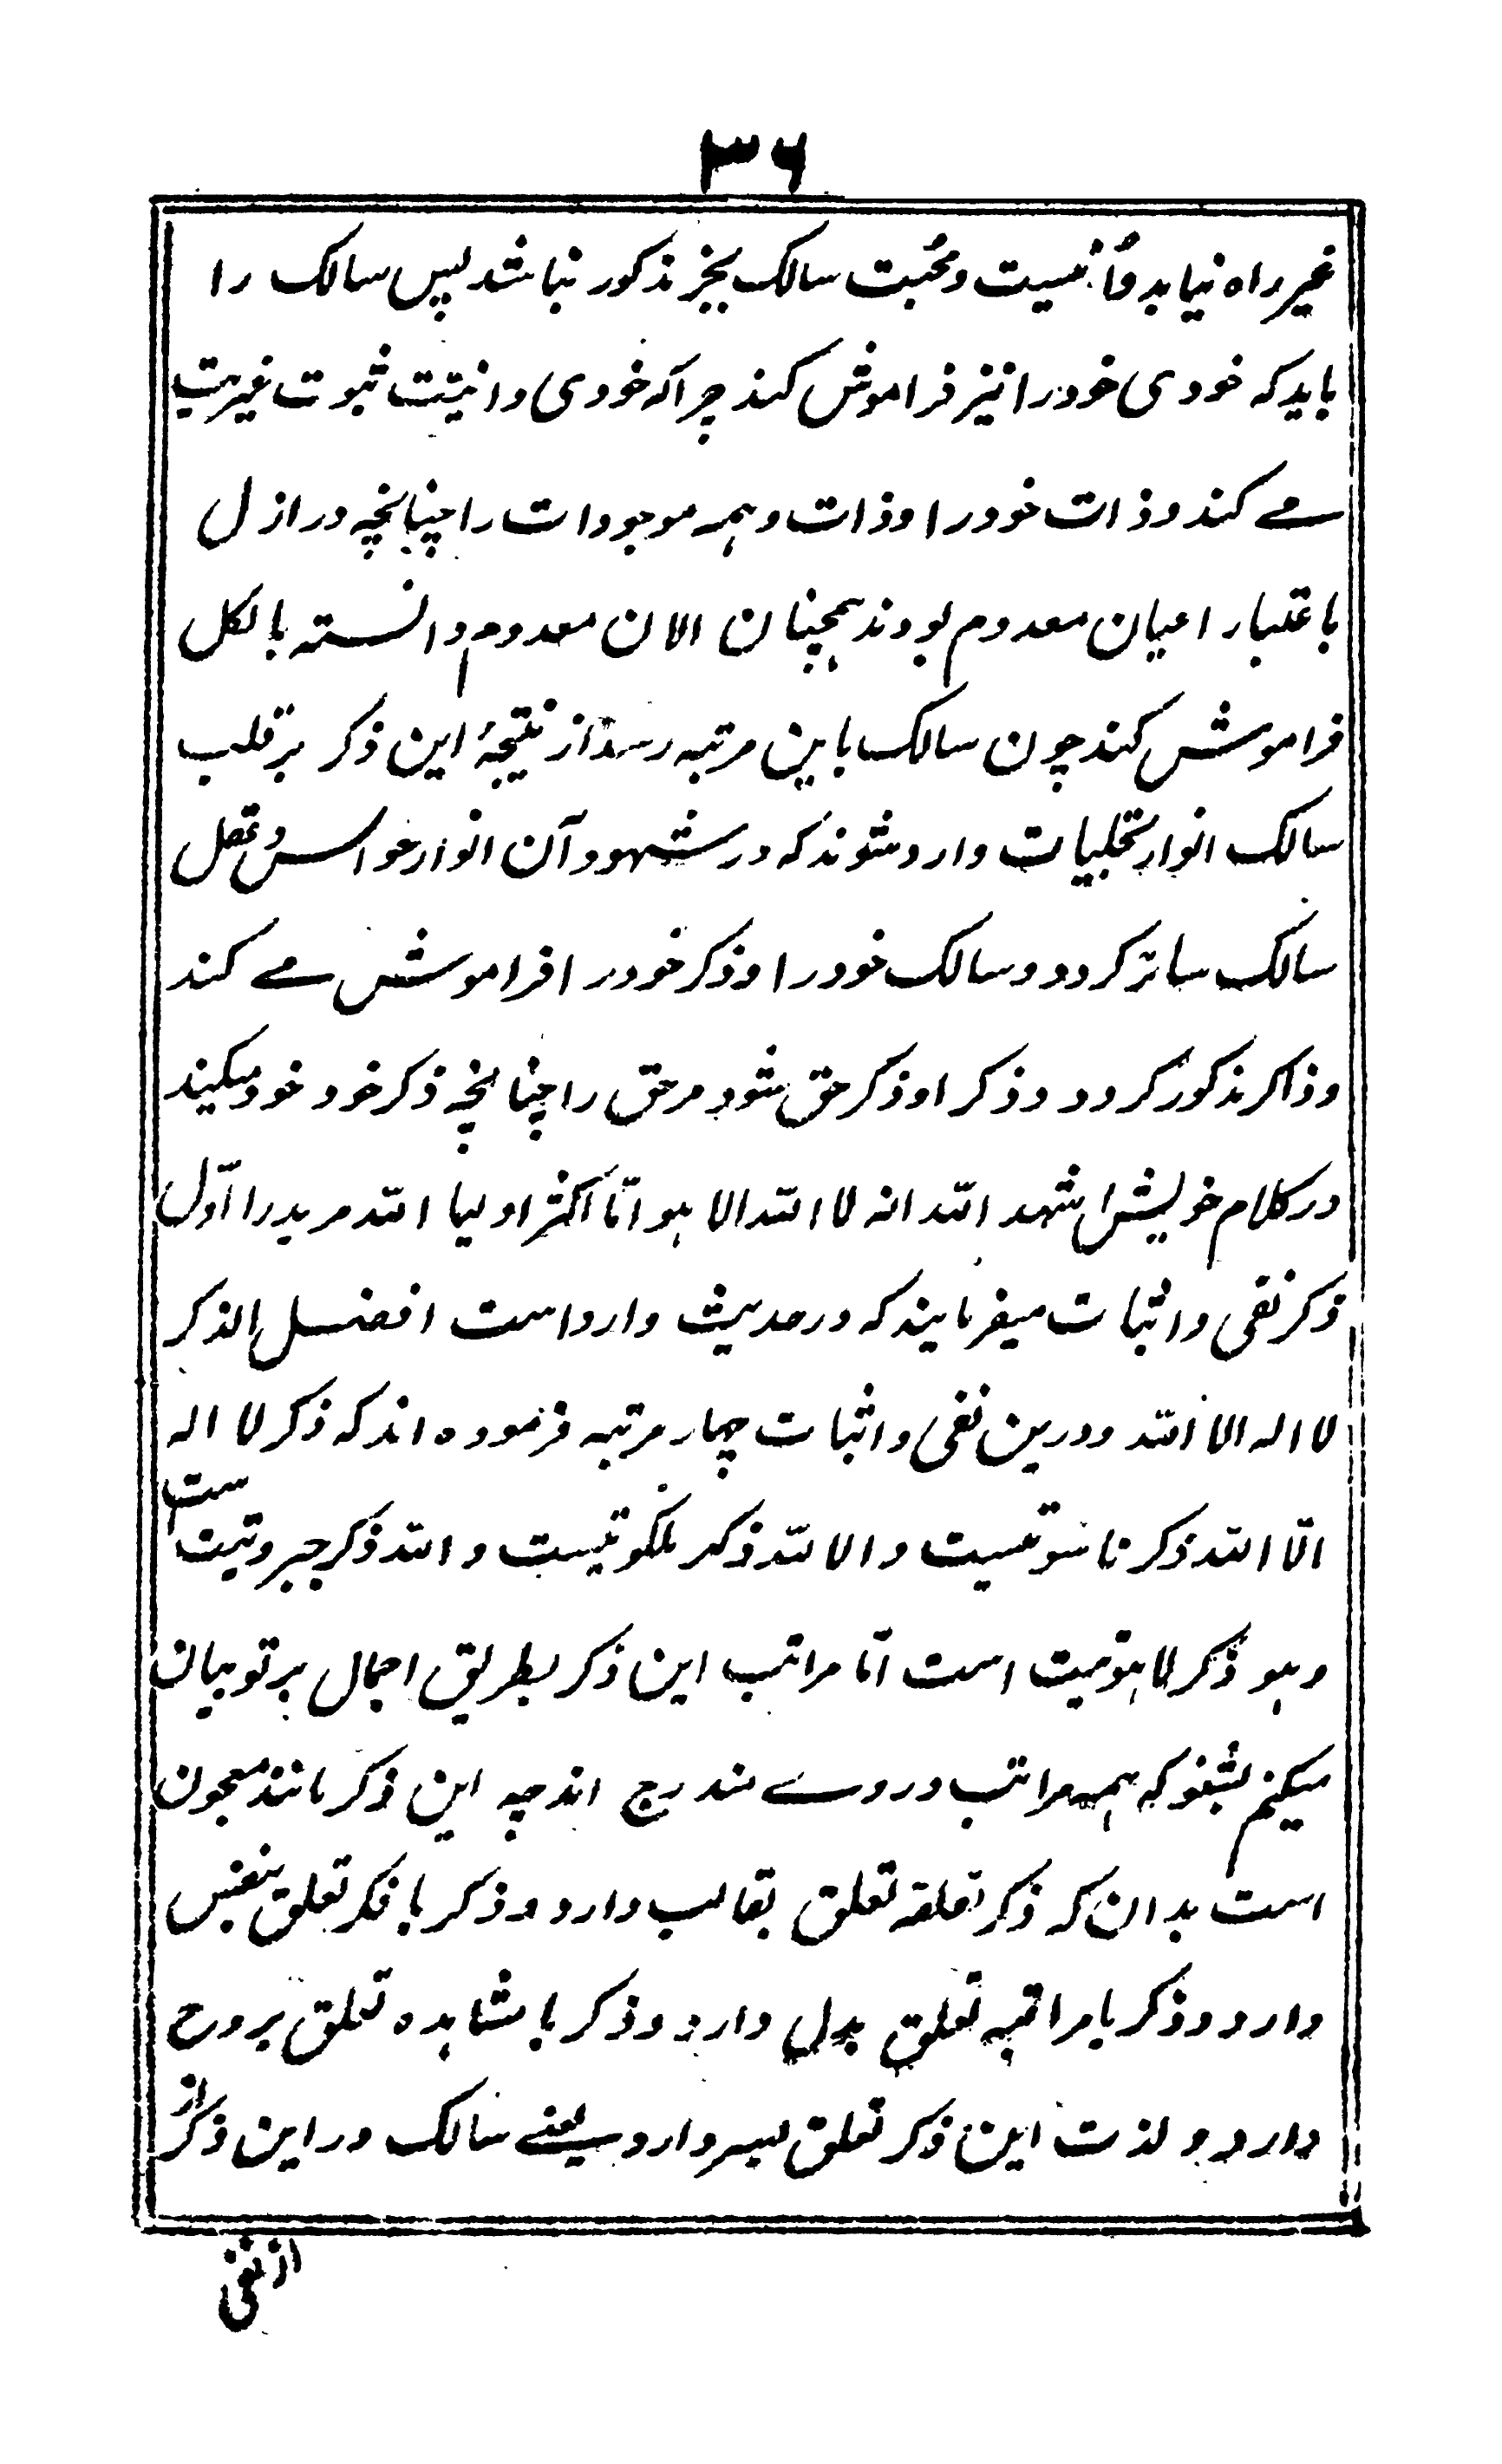 ۳۶
غیر راه نیابد و اُنسیت و محبت سالک بجز مذکور نباشد پس سالک را
باید که خودی خود را نیز فراموش کند چرا که خودی و انیّت ثبوت غیریت
مے کند و ذات خود را و ذات و همه موجودات را چنانچه در ازل
باعتبار اعیان معدوم بودند همچنان الان معدوم دانسته بالکل
فراموش کند چون سالک باین مرتبه رسد از نتیجهٔ این ذکر بر قلب
سالک انوار تجلیات وارد شوند که در شهود آن انوار حواس و عقل
سالک ساتر گردد و سالک خود را و ذکر خود را فراموش مے کند
و ذاکر مذکور گردد و ذکر او ذکر حق شود مر حق را چنانچه ذکر خود خود میکند
در کلام خویش اشهد الله انه لا الله الا هو امّا اکثر اولیا الله مرید را اوّل
ذکر نفی و اثبات میفرمایند که در حدیث وارد است افضل الذکر
لا اله الا الله و درین نفی و اثبات چهار مرتبه فرموده اند که ذکر لا اله
الّا الله ذکر ناسوتیست و الا الله ذکر ملکوتیست و الله ذکر جبروتیت ست
و هو ذکر لاهوتیت است امّا مراتب این ذکر بطریق اجمال بر تو بیان
میکنم بشنو که همه مراتب در وے مندرج اند چه این ذکر مانند معجون
است بدان که ذکر لقلقه تعلق بقالب دارد و ذکر با فکر تعلق بنفس
دارد و ذکر با مراقبه تعلق بدل دارد و ذکر با مشاهده تعلق بروح
دارد و لذت این ذکر تعلق بسر دارد یعنے سالک در این ذکر از
از نفی